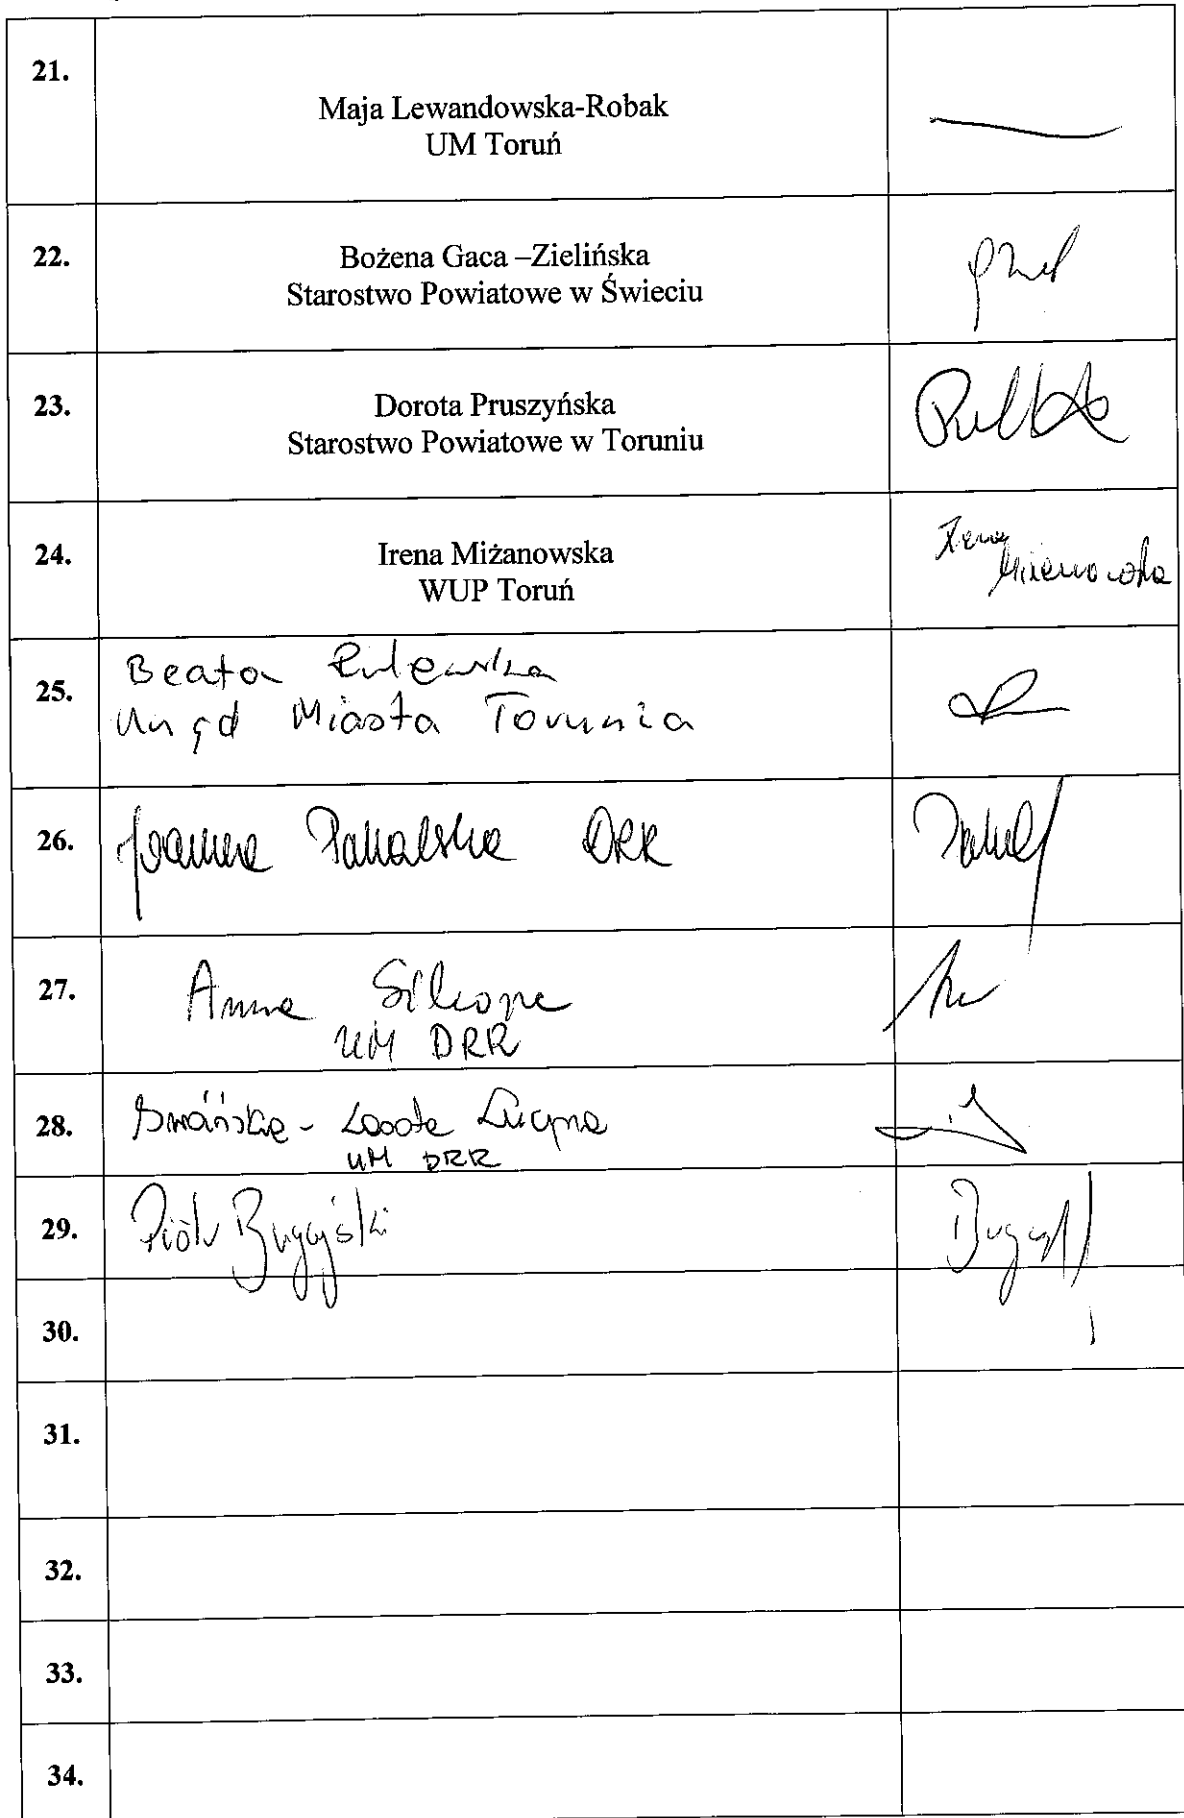 21.
Maja Lewandowska-Robak
UM Toruń
22.
Bożena Gaca –Zielińska
Starostwo Powiatowe w Świeciu
23.
Dorota Pruszyńska
Starostwo Powiatowe w Toruniu
24.
Irena Miżanowska
WUP Toruń
25.
Beata
Urząd Miasta Torunia
26.
Joanna DRR
27.
Anna
UM DRR
28.
Lucyna
UM DRR
29.
Piotr Bugajski
30.
31.
32.
33.
34.